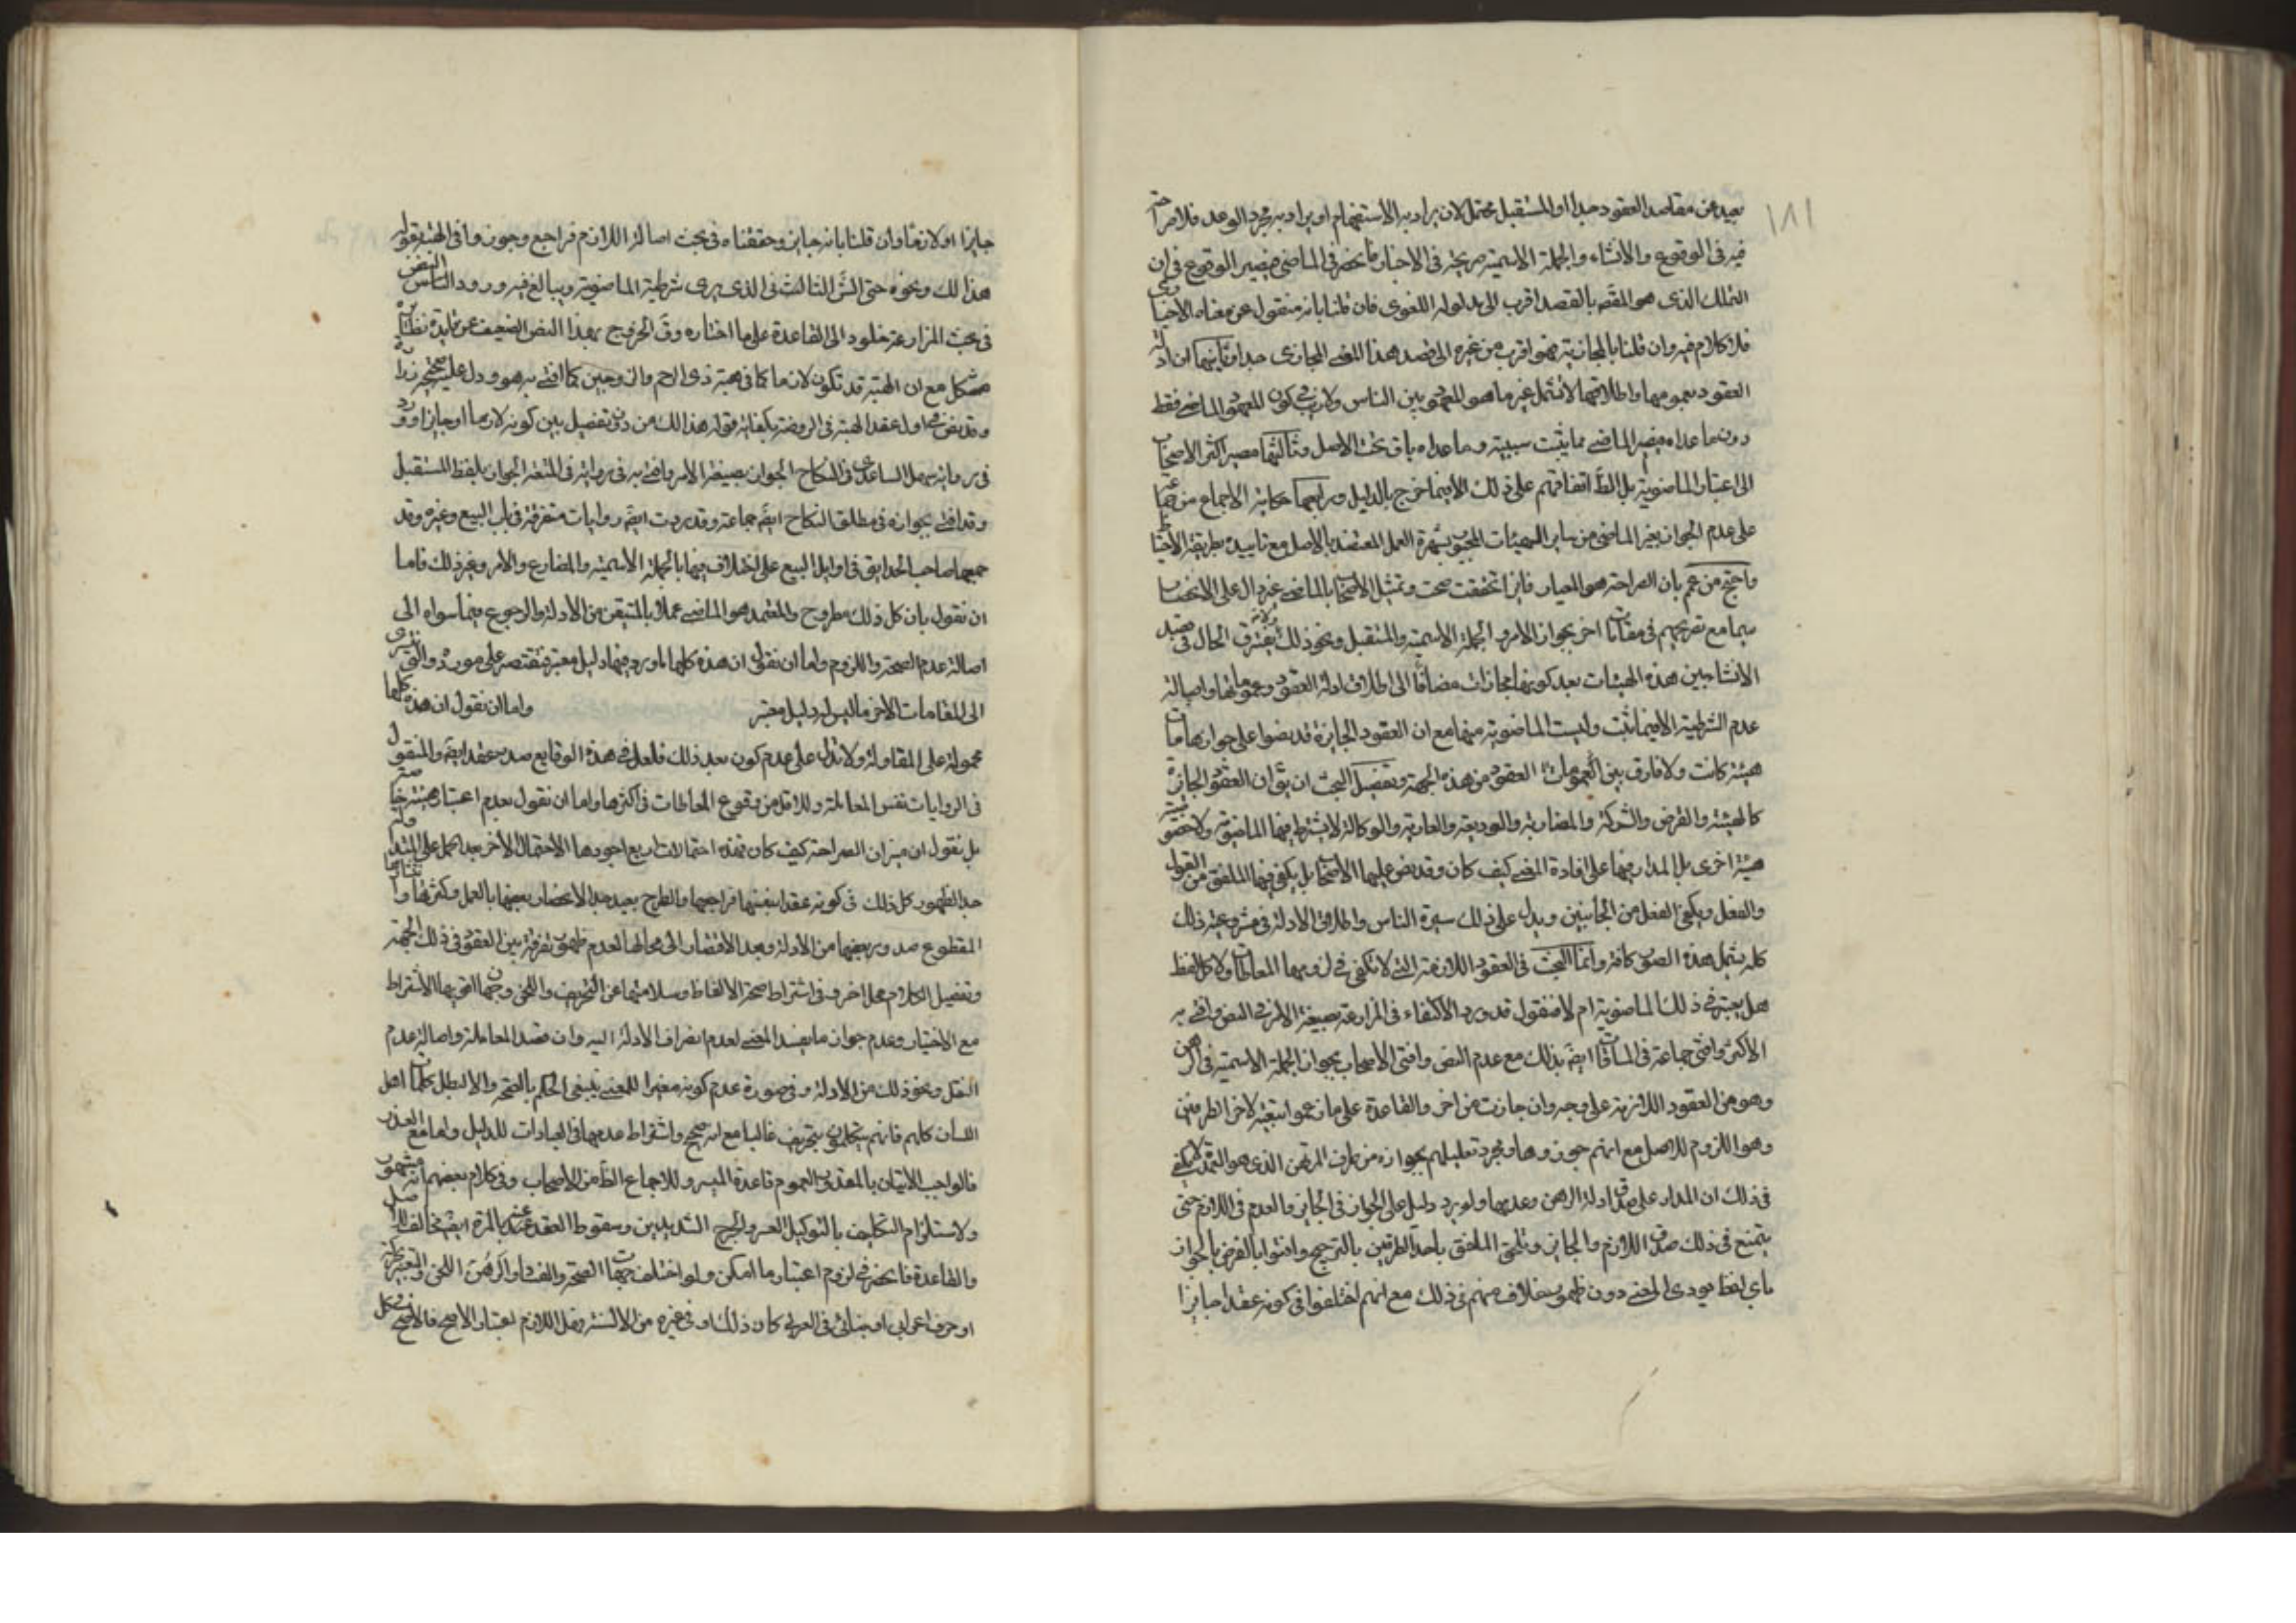 ١٨١
بعيد عن مقاصد العقود جدا او المستقبل محتمل لان يراد به الاستفهام او يراد به مجرد الوعد فلا صراحة
فيه فى الوقوع والانشاء والجملة الاسمية صريحة فى الاخبار فانحصر فى الماضى فيصير الوقوع فى ان
التملك الذى هو المقصد بالقصد اقرب الى مدلوله اللغوى فان قلنا بانه منقول عن معناه الاخبارى
فلا كلام فيه وان قلنا بالمجازية فهو اقرب من غيره الى قصد هذا المعنى المجازى جدا وثانيها ان ادلة
العقود بعمومها واطلاقها لا تشمل غير ما هو المعهود بين الناس ولا ريب فى كون المعهود الماضى فقط
دون ما عداه فيصير الماضى مما يثبت سببيته وما عداه باق تحت الاصل وثالثها مصير اكثر الاصحاب
الى اعتبار الماضوية بل الظ اتفاقهم على ذلك الا فيما خرج بالدليل ورابعها حكاية الاجماع من جماعة
على عدم الجواز بغير الماضى من ساير الهيئات المجبور بشهرة العمل المعتضد بالاصل مع تاييده بطريقة الاحتياط
واحتج من عمم بان الصراحة هو المعيار فاذا تحققت صحت وتمثيل الاصحاب بالماضى غير دال على الانحصار
سيما مع تصريحهم فى مقامات اخر بجواز الامر و الجملة الاسمية والمستقبل ونحو ذلك ولانه لا يفترق الحال فى قصد
الانشاء بين هذه الهيئات بعد كونها مجازات مضافا الى اطلاق ادلة العقود وعموماتها واصالة
عدم الشرطية الا فيما ثبت وليست الماضوية منها مع ان العقود الجايزة قد نصوا على جوازها باى
هيئة كانت ولا فارق بين العمومات العقود من هذه الجهة وتفصيل البحث ان يق ان العقود الجايزة
كالهبة والقرض والشركة والمضاربة والوديعة والعارية والوكالة لا يشترط فيها الماضوية ولا خصوصية
هيئة اخرى بل المدار فيها على افادة المعنى كيف كان وقد نص عليها الاصحاب بل يكفى فيها الملفق من القول
والفعل ويكفى الفعل من الجانبين ويدل على ذلك سيرة الناس واطلاق الادلة فى مشروعية ذلك
كله يشمل هذه الصور كافة وانما البحث فى العقود اللازمة التى لا تكفى فى لزومها المعاطات ولا كل لفظ
هل يعتبر فى ذلك الماضوية ام لا فنقول قد ورد الاكتفاء فى المزارعة بصيغة الامر فى النص وافتى به
الاكثر وافتى جماعة فى المساقات ايضا بذلك مع عدم النص وافتى الاصحاب بجواز الجملة الاسمية فى الرهن
وهو من العقود اللازمة على وجه وان جازت من اخر والقاعدة على ما زعموا تبعية لاخر الطرفين
وهو اللزوم للاصل مع انهم جوزوها ومجرد تعليلهم بجوازه من طرف المرتهن الذى هو العمدة لا يكفى
فى ذلك ان المدار على صدق ادلة الرهن وعدمها ولو يرد دليل على الجواز فى الجايز والعدم فى اللازم حتى
يتمنع فى ذلك صدق اللازم والجايز ويلحق الملفق باحد الطرفين بالترجيح وافتوا بالقرض بالجواز
باى لفظ يودى المعنى دون ظهور خلاف منهم فى ذلك مع انهم اختلفوا فى كونه عقدا جايزا
جايزا او لازما وان قلنا بانه جايز وحققناه فى بحث اصالة اللازم فراجع وجوزوا فى الهبة بقوله
هذا لك ونحوه حتى الشهيد الثانى الذى يرى شرطية الماضوية ويبالغ فيه ورود النص
فى بحث المزارعة خلود الى القاعدة على ما اختاره وق الخروج بهذا النص الضعيف عن قاعدة نظائره
مشكل مع ان الهبة قد تكون لازما كما فى هبة ذى الرحم والزوجين كما افتى به هو ودل عليه صحيحة زرارة
وقد نص فى اول عقد الهبة فى الروضة بكفاية قوله هذا لك من دون تفصيل بين كونه لازما او جايزا وورد
فى رواية سهل الساعدى فى النكاح الجواز بصيغة الامر وافتى به فى رواية فى المتعة الجواز بلفظ المستقبل
وقد افتى بجوازه فى مطلق النكاح ايضا جماعة وقد وردت ايضا روايات متفرقة فى باب البيع وغيره وقد
جمعها صاحب الحدايق فى اوايل البيع على اختلاف فيها بالجملة الاسمية والمضارع والامر وغير ذلك فاما
ان نقول بان كل ذلك مطروح والمعتمد هو الماضى عملا بالمتيقن من الادلة والرجوع فيما سواه الى
اصالة عدم الصحة واللزوم واما ان نقول ان هذه كلها ما ورد فيها دليل معتبر فنقتصر على مورده ولا نتعدى
الى المقامات الاخر ما ليس له دليل معتبر واما ان نقول ان هذه كلها
محمولة على المقاولة ولا تدل على عدم كون بعد ذلك فلعل فى هذه الوقايع صدر عقد ايضا والمنقول
فى الروايات نفس المعاملة ولا اقل من وقوع المعاطات فى اكثرها واما ان نقول بعدم اعتبار هيئة خاصة
بل نقول ان ميزان الصراحة كيف كان فهذه احتمالات اربع اجودها الاحتمال الاخر
جدا لظهور كل ذلك فى كونه عقدا بنفسها فراجعها والطرح بعيد جدا لاعتضاد بعضها بالعمل وكثرتها
المقطوع صدور بعضها من الادلة وبعد الاقتصار الى محالها لعدم ظهور تفرقة بين العقود فى ذلك الجهة
وتفصيل الكلام محل اخر وفى اشتراط صحة الالفاظ وسلامتها عن التحريف واللحن وجهان اقويهما الاشتراط
مع الاختيار وعدم جواز ما يفسد المعنى لعدم انصراف الادلة اليه وان قصد المعاملة واصالة عدم
النقل ونحو ذلك من الادلة وفى صورة عدم كونه مغيرا للمعنى ينبغى الحكم بالصحة والا لبطل كلمات اهل
اللسان كلهم فانهم يتكلمون بتحريف غالبا مع انه صحيح واشتراط عدمها فى العبادات للدليل واما مع العذر
فالواجب الاتيان بالمقدور لعموم قاعدة الميسور وللاجماع الظ من الاصحاب وفى كلام بعضهم انه مشهور
ولاستلزام التكليف بالتوكيل العسر والحرج الشديدين وسقوط العقد عنه بالمرة ايضا مخالف للاصل
والقاعدة فانحصر فى لزوم اعتبار ما امكن ولو اختلف جهات الصحة والفساد او الرهن اللحن والتغيير بحركة
او حرف اعرابى او بنائى فى العربى كان ذلك او فى غيره من الالسنة فهل اللازم اعتبار الاصح فالاصح